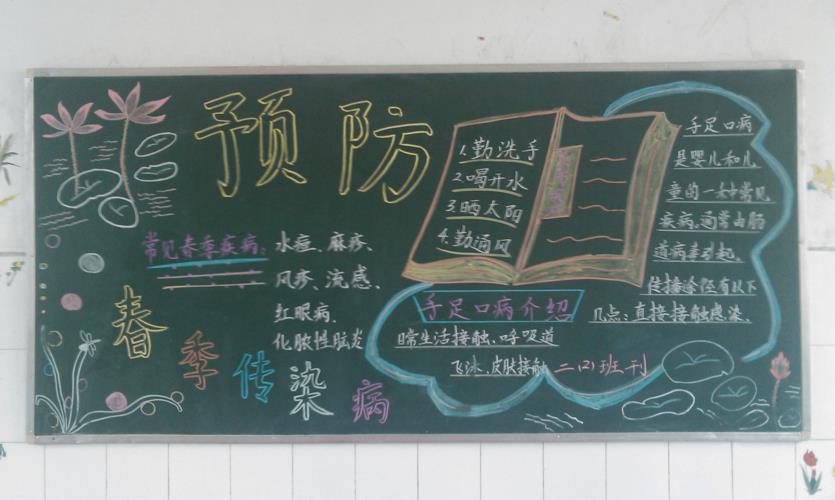 预防
春季传染病
常见春季疾病：
水痘、麻疹、
风疹、流感、
红眼病、
化脓性脑炎
1.勤洗手
2.喝开水
3.晒太阳
4.勤通风
手足口病介绍
手足口病
是婴儿和儿
童的一种常见
疾病。通常由肠
道病毒引起。
传播途径有以下
几点：直接接触感染、
日常生活接触、呼吸道
飞沫、皮肤接触
二（2）班刊